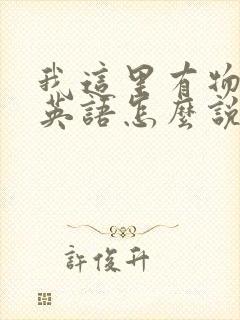 我這里有物
英語怎麼說
許俊升